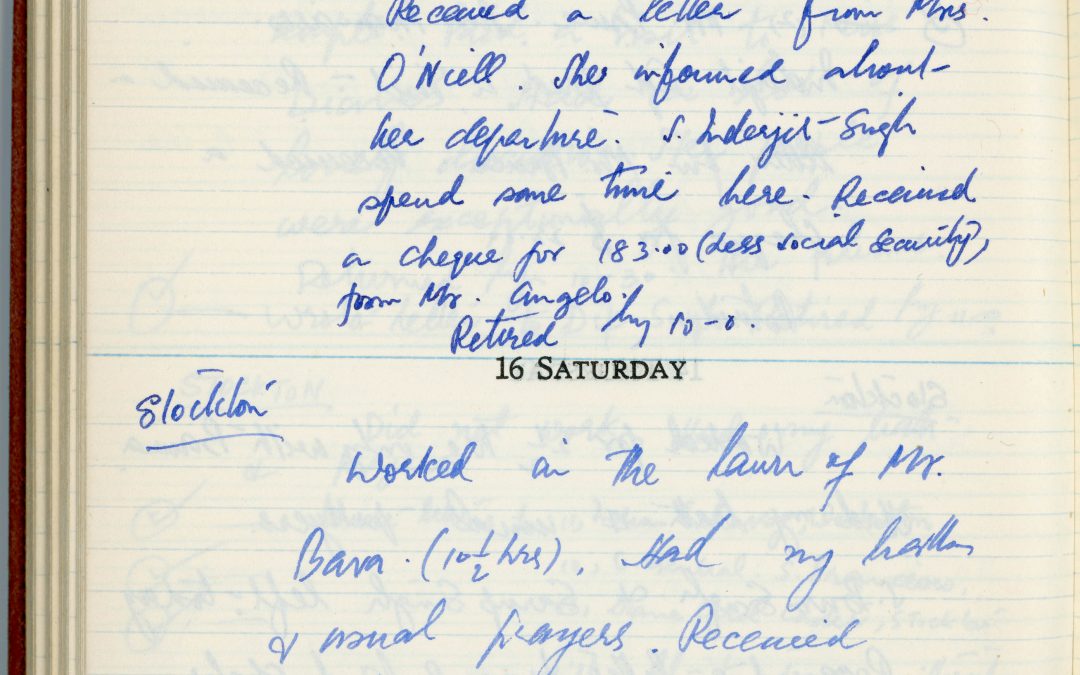 Received a letter from Mrs.
O'Niell. She informed about
her departure. S. Inderjit Singh
spend some time here. Received
a cheque for 183.00 (Less social security),
from Mr. Angelo.
Retired by 10-0.
16 SATURDAY
Stockton
Worked in the lawn of Mr.
Bava. (10½ hrs). Had my bath
& usual prayers. Received